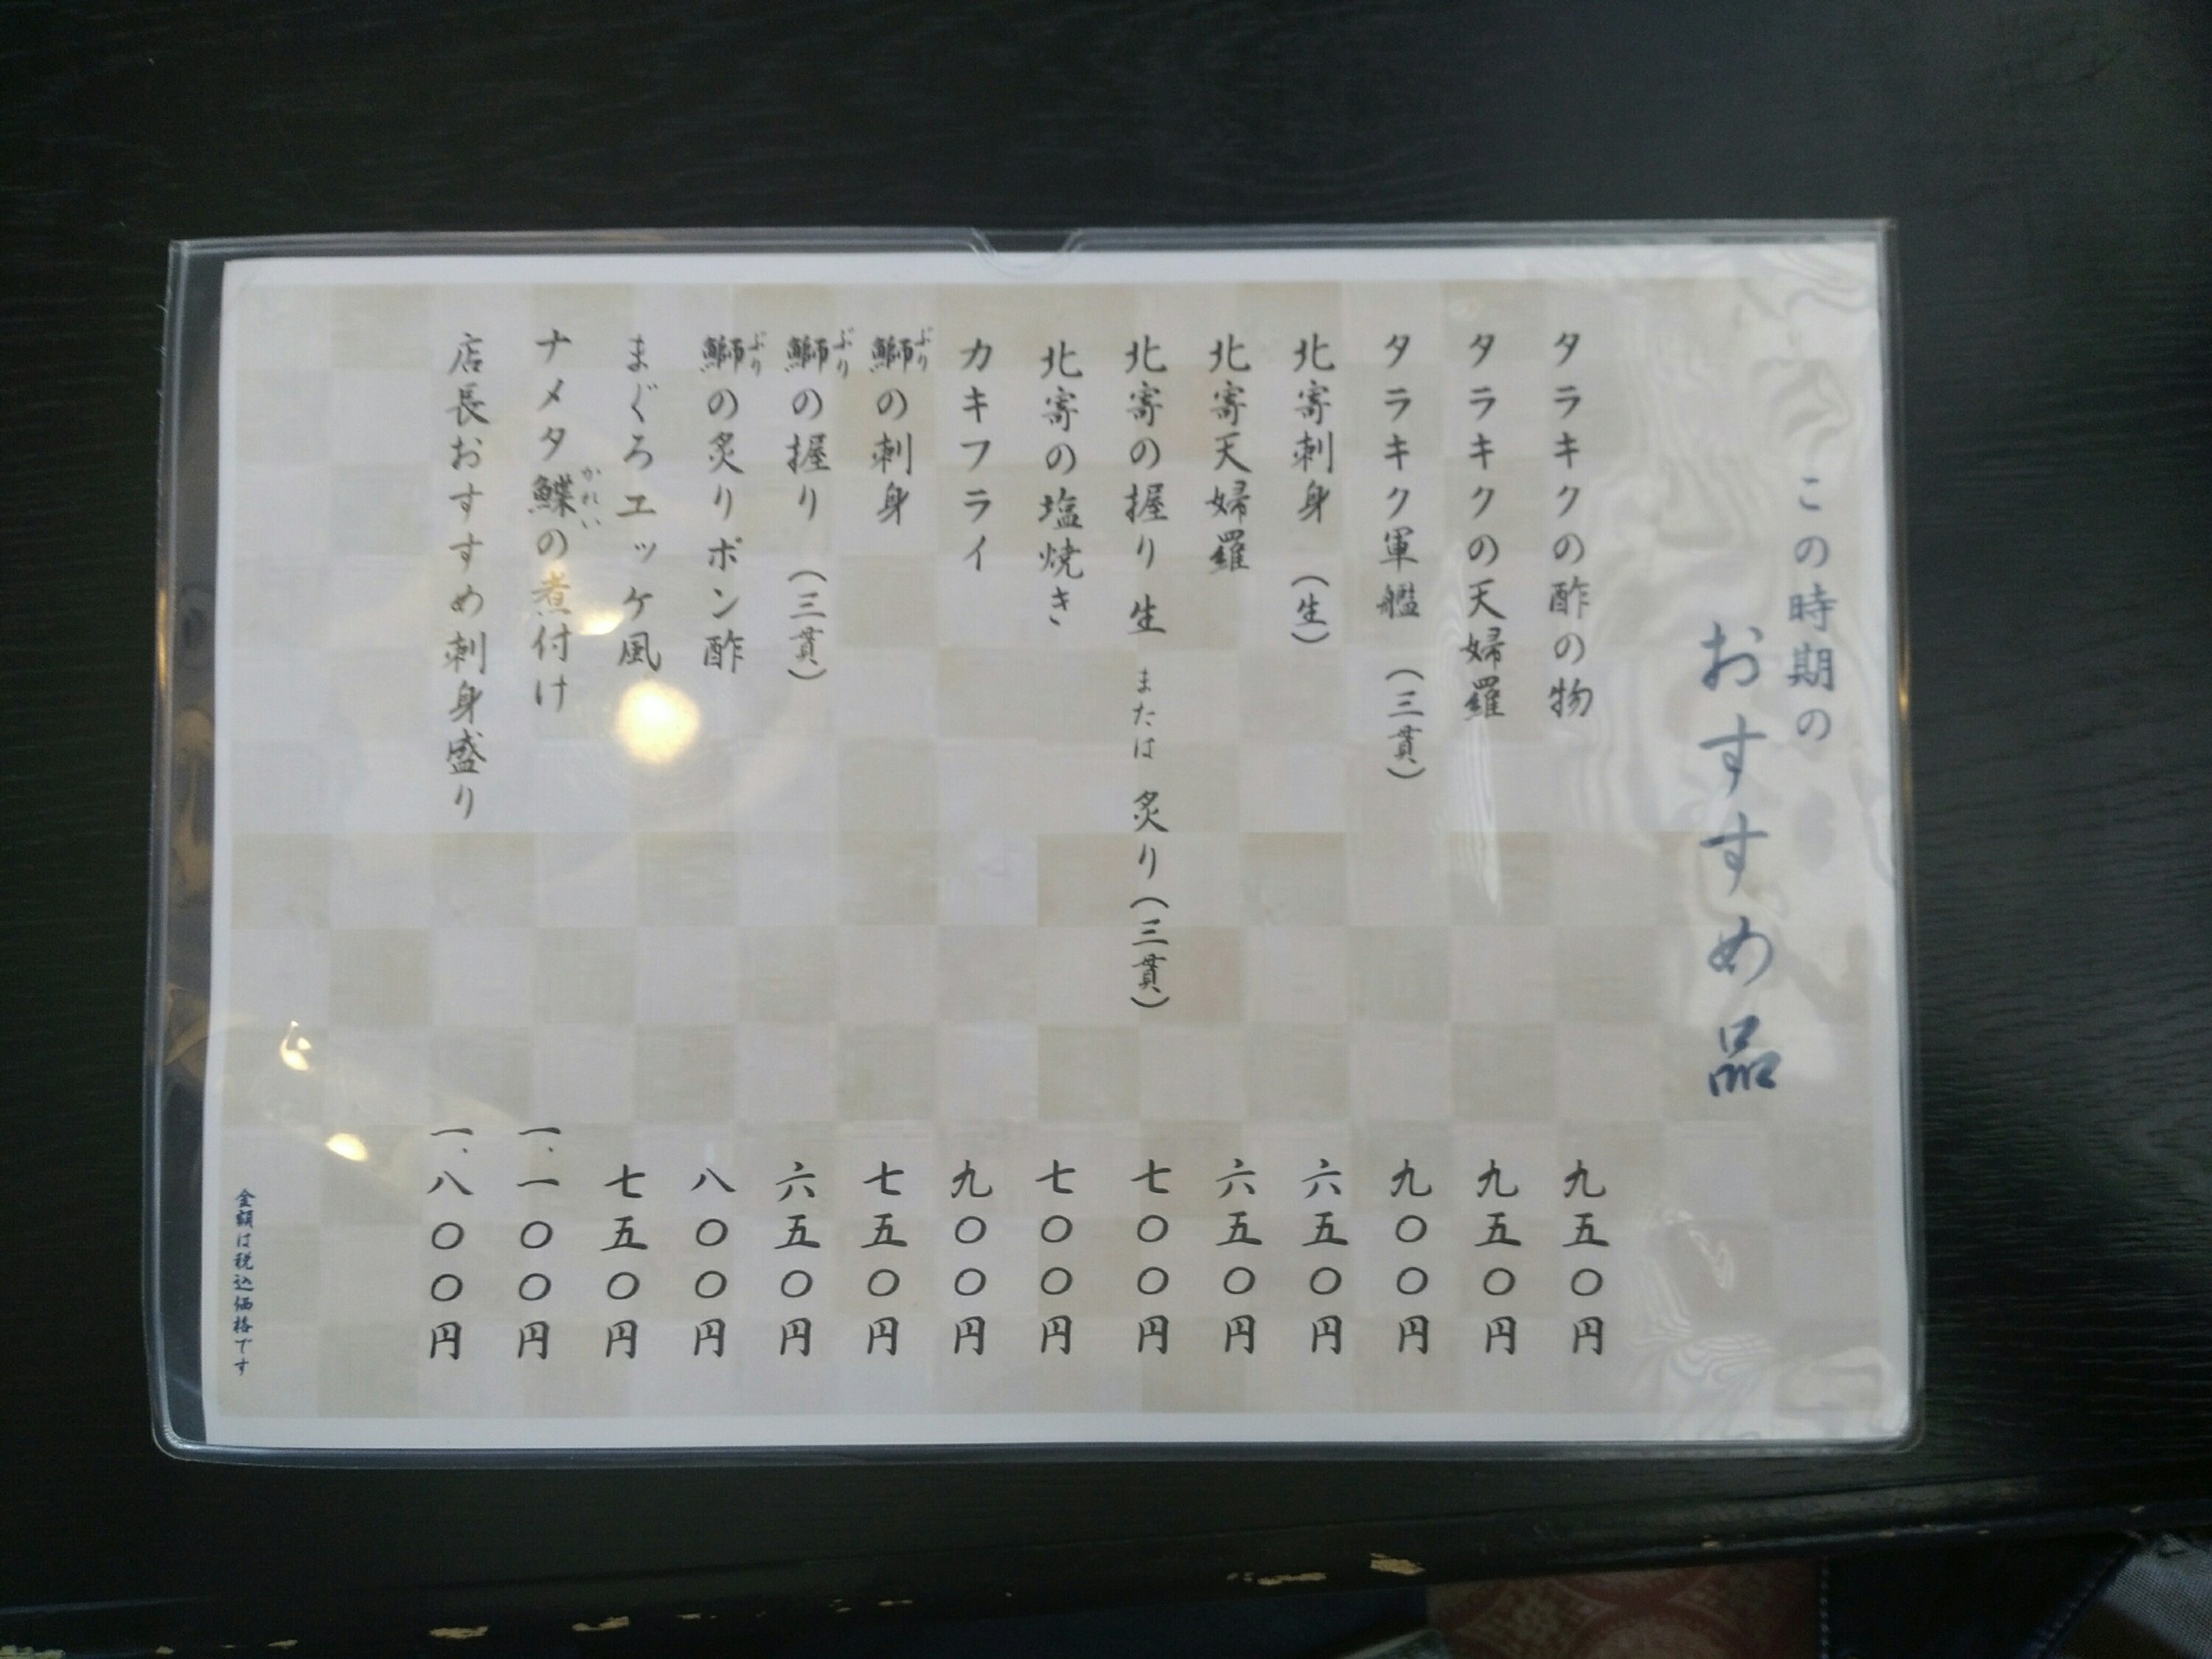 この時期の
おすすめ品
タラキクの酢の物 九五〇円
タラキクの天婦羅 九五〇円
タラキク軍艦 (三貫) 九〇〇円
北寄刺身 (生) 六五〇円
北寄天婦羅 六五〇円
北寄の握り 生 または 炙り(三貫) 七〇〇円
北寄の塩焼き 七〇〇円
カキフライ 九〇〇円
鰤の刺身 七五〇円
ぶり
鰤の握り (三貫) 六五〇円
ぶり
鰤の炙りポン酢 八〇〇円
ぶり
まぐろユッケ風 七五〇円
ナメタ鰈の煮付け 一、一〇〇円
かれい
店長おすすめ刺身盛り 一、八〇〇円
金額は税込価格です